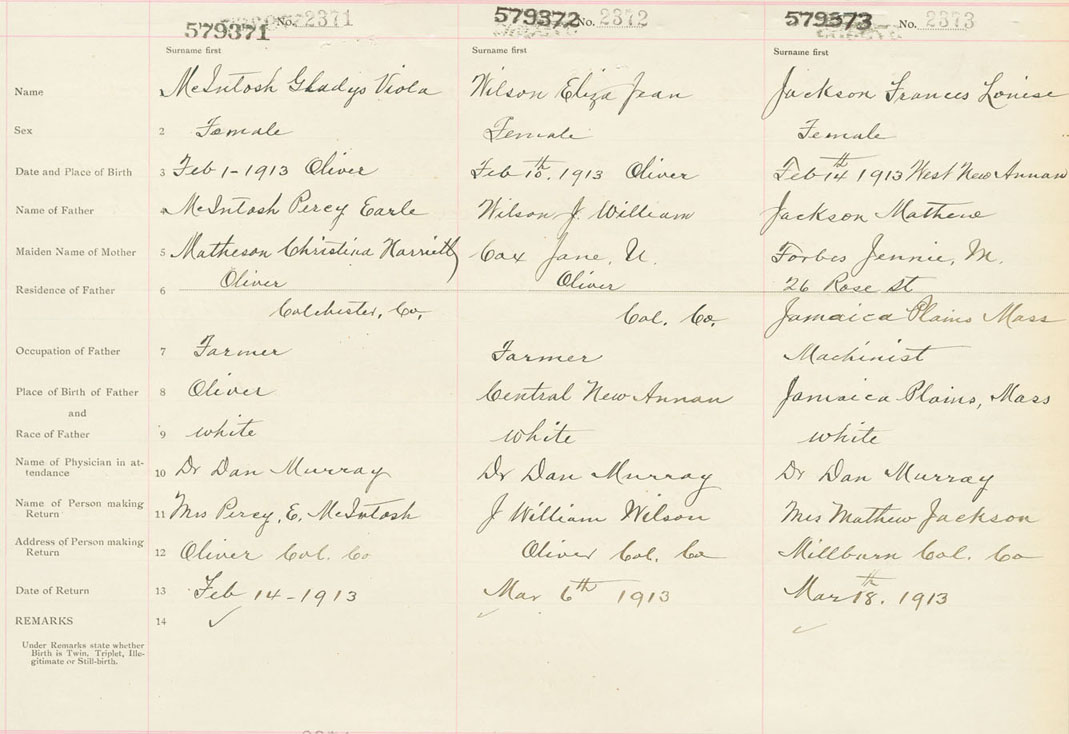 579371 No. 2371 579372 No. 2372 579373 No. 2373
Surname first Surname first Surname first
Name McIntosh Gladys Viola Wilson Eliza Jean Jackson Frances Louise
Sex 2 Female Female Female
Date and Place of Birth 3 Feb 1-1913 Oliver Feb 10th. 1913 Oliver Feb 14th 1913 West New Annan
Name of Father 4 McIntosh Percy Earle Wilson J. William Jackson Mathew
Maiden Name of Mother 5 Matheson Christina Harriett Cox Jane, U. Forbes Jennie, M.
Residence of Father 6 Oliver Oliver 26 Rose St
Colchester, Co, Col. Co, Jamaica Plains Mass
Occupation of Father 7 Farmer Farmer Machinist
Place of Birth of Father 8 Oliver Central New Annan Jamaica Plains, Mass
and
Race of Father 9 white white white
Name of Physician in at-
tendance 10 Dr Dan Murray Dr Dan Murray Dr Dan Murray
Name of Person making
Return 11 Mrs Percy. E. McIntosh J William Wilson Mrs Mathew Jackson
Address of Person making
Return 12 Oliver Col. Co Oliver Col. Co Millburn Col. Co
Date of Return 13 Feb 14-1913 Mar 6th 1913 Mar 18th. 1913
REMARKS 14
Under Remarks state whether
Birth is Twin, Triplet, Ille-
gitimate or Still-birth.